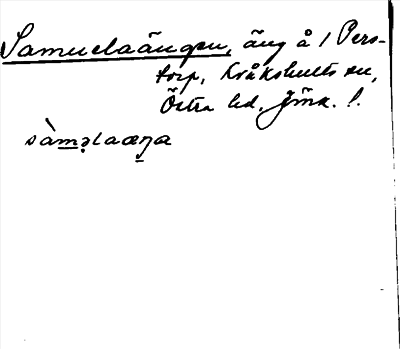 Samuelaängen, äng å 1 Pers-
torp, Kråkshults sn,
Östra hd, Jönk. l.
sàməlaæŋa